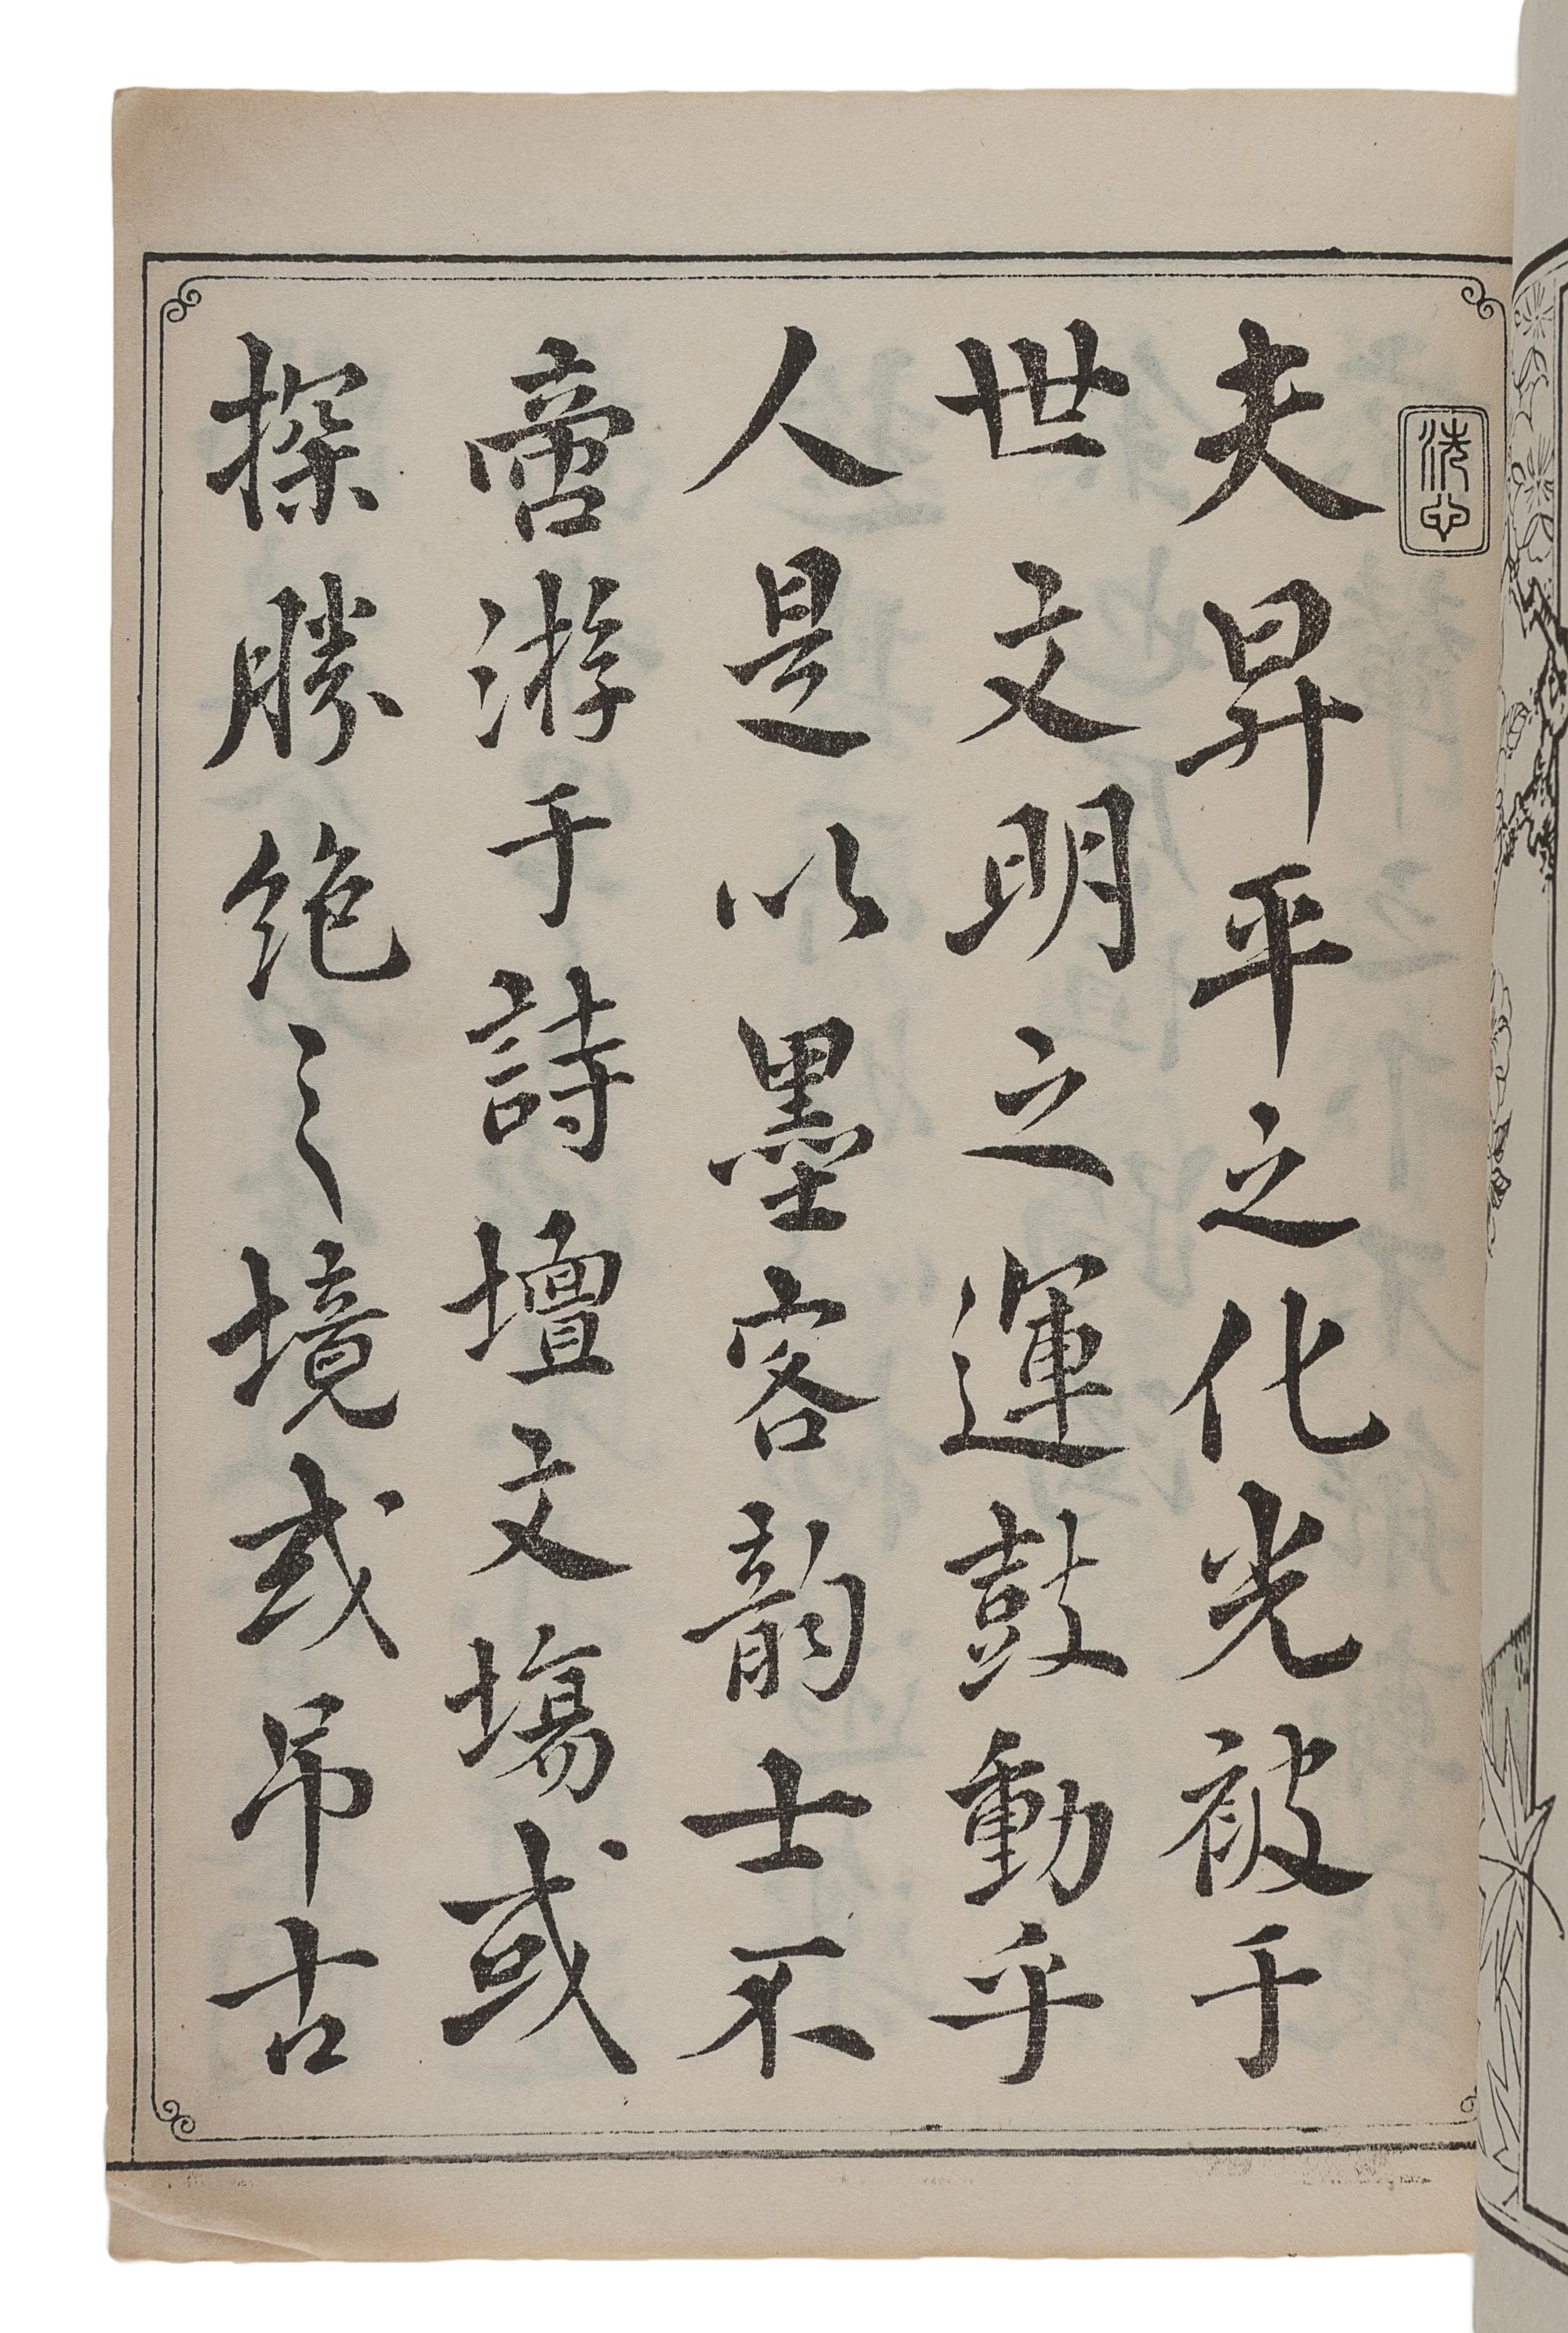 洗心
夫昇平之化光被于
世文明之運鼓動乎
人是以墨客韵士不
啻游于詩壇文塲或
探勝絶之境或吊古